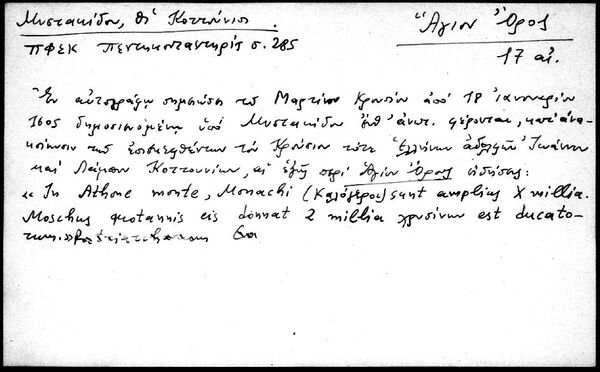 Μυστακίδου, Οἱ Κοττούνιοι.
Ἅγιον Ὄρος
ΠΦΣΚ Πεντηκονταετηρίς σ. 285
17 αἰ.
Ἐν αὐτογράφῳ σημειώσει τοῦ Μαρτίνου Κρουσίου ἀπὸ 18 Ἰανουαρίου
1605 δημοσιευομένῃ ὑπὸ Μυστακίδου ἔνθ' ἀνωτ. φέρονται, κατ' ἀνα-
κοίνωσιν τῶν ἐπισκεφθέντων τὸν Κρούσιον τότε Ἑλλήνων ἀδελφῶν Ἰωάννου
καὶ Κοττουνίων, αἱ ἑξῆς περὶ Ἁγίου Ὄρους εἰδήσεις:
« In Athone monte, Monachi (Καλόγεροι) sunt amplius X millia.
Moschus quotannis eis donnat 2 millia χρυσίνων est ducato-
rum.»